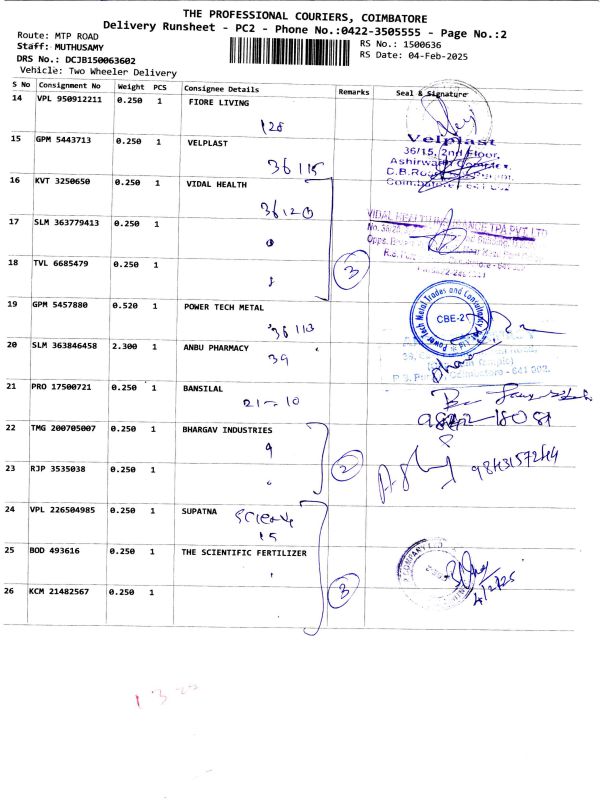 THE PROFESSIONAL COURIERS, COIMBATORE
Delivery Runsheet - PC2 - Phone No.:0422-3505555 - Page No.:2
Route: MTP ROAD
Staff: MUTHUSAMY
RS No.: 1500636
DRS No.: DCJB150063602
RS Date: 04-Feb-2025
Vehicle: Two Wheeler Delivery
S No Consignment No Weight PCS Consignee Details Remarks Seal & Signature
14 VPL 950912211 0.250 1 FIORE LIVING
128
15 GPM 5443713 0.250 1 VELPLAST
Velplast
36/15, 2nd Floor,
36 115
16 KVT 3250650 0.250 1 VIDAL HEALTH
36 120
17 SLM 363779413 0.250 1
18 TVL 6685479 0.250 1
3
19 GPM 5457880 0.520 1 POWER TECH METAL
Power Tech Metal Trades and Consultancy
CBE-2
36 113
20 SLM 363846458 2.300 1 ANBU PHARMACY
39
21 PRO 17500721 0.250 1 BANSILAL
21-10
22 TMG 200705007 0.250 1 BHARGAV INDUSTRIES
9
23 RJP 3535038 0.250 1
2
9843157244
24 VPL 226504985 0.250 1 SUPATNA
Science
15
25 BOD 493616 0.250 1 THE SCIENTIFIC FERTILIZER
26 KCM 21482567 0.250 1
3
4/2/25